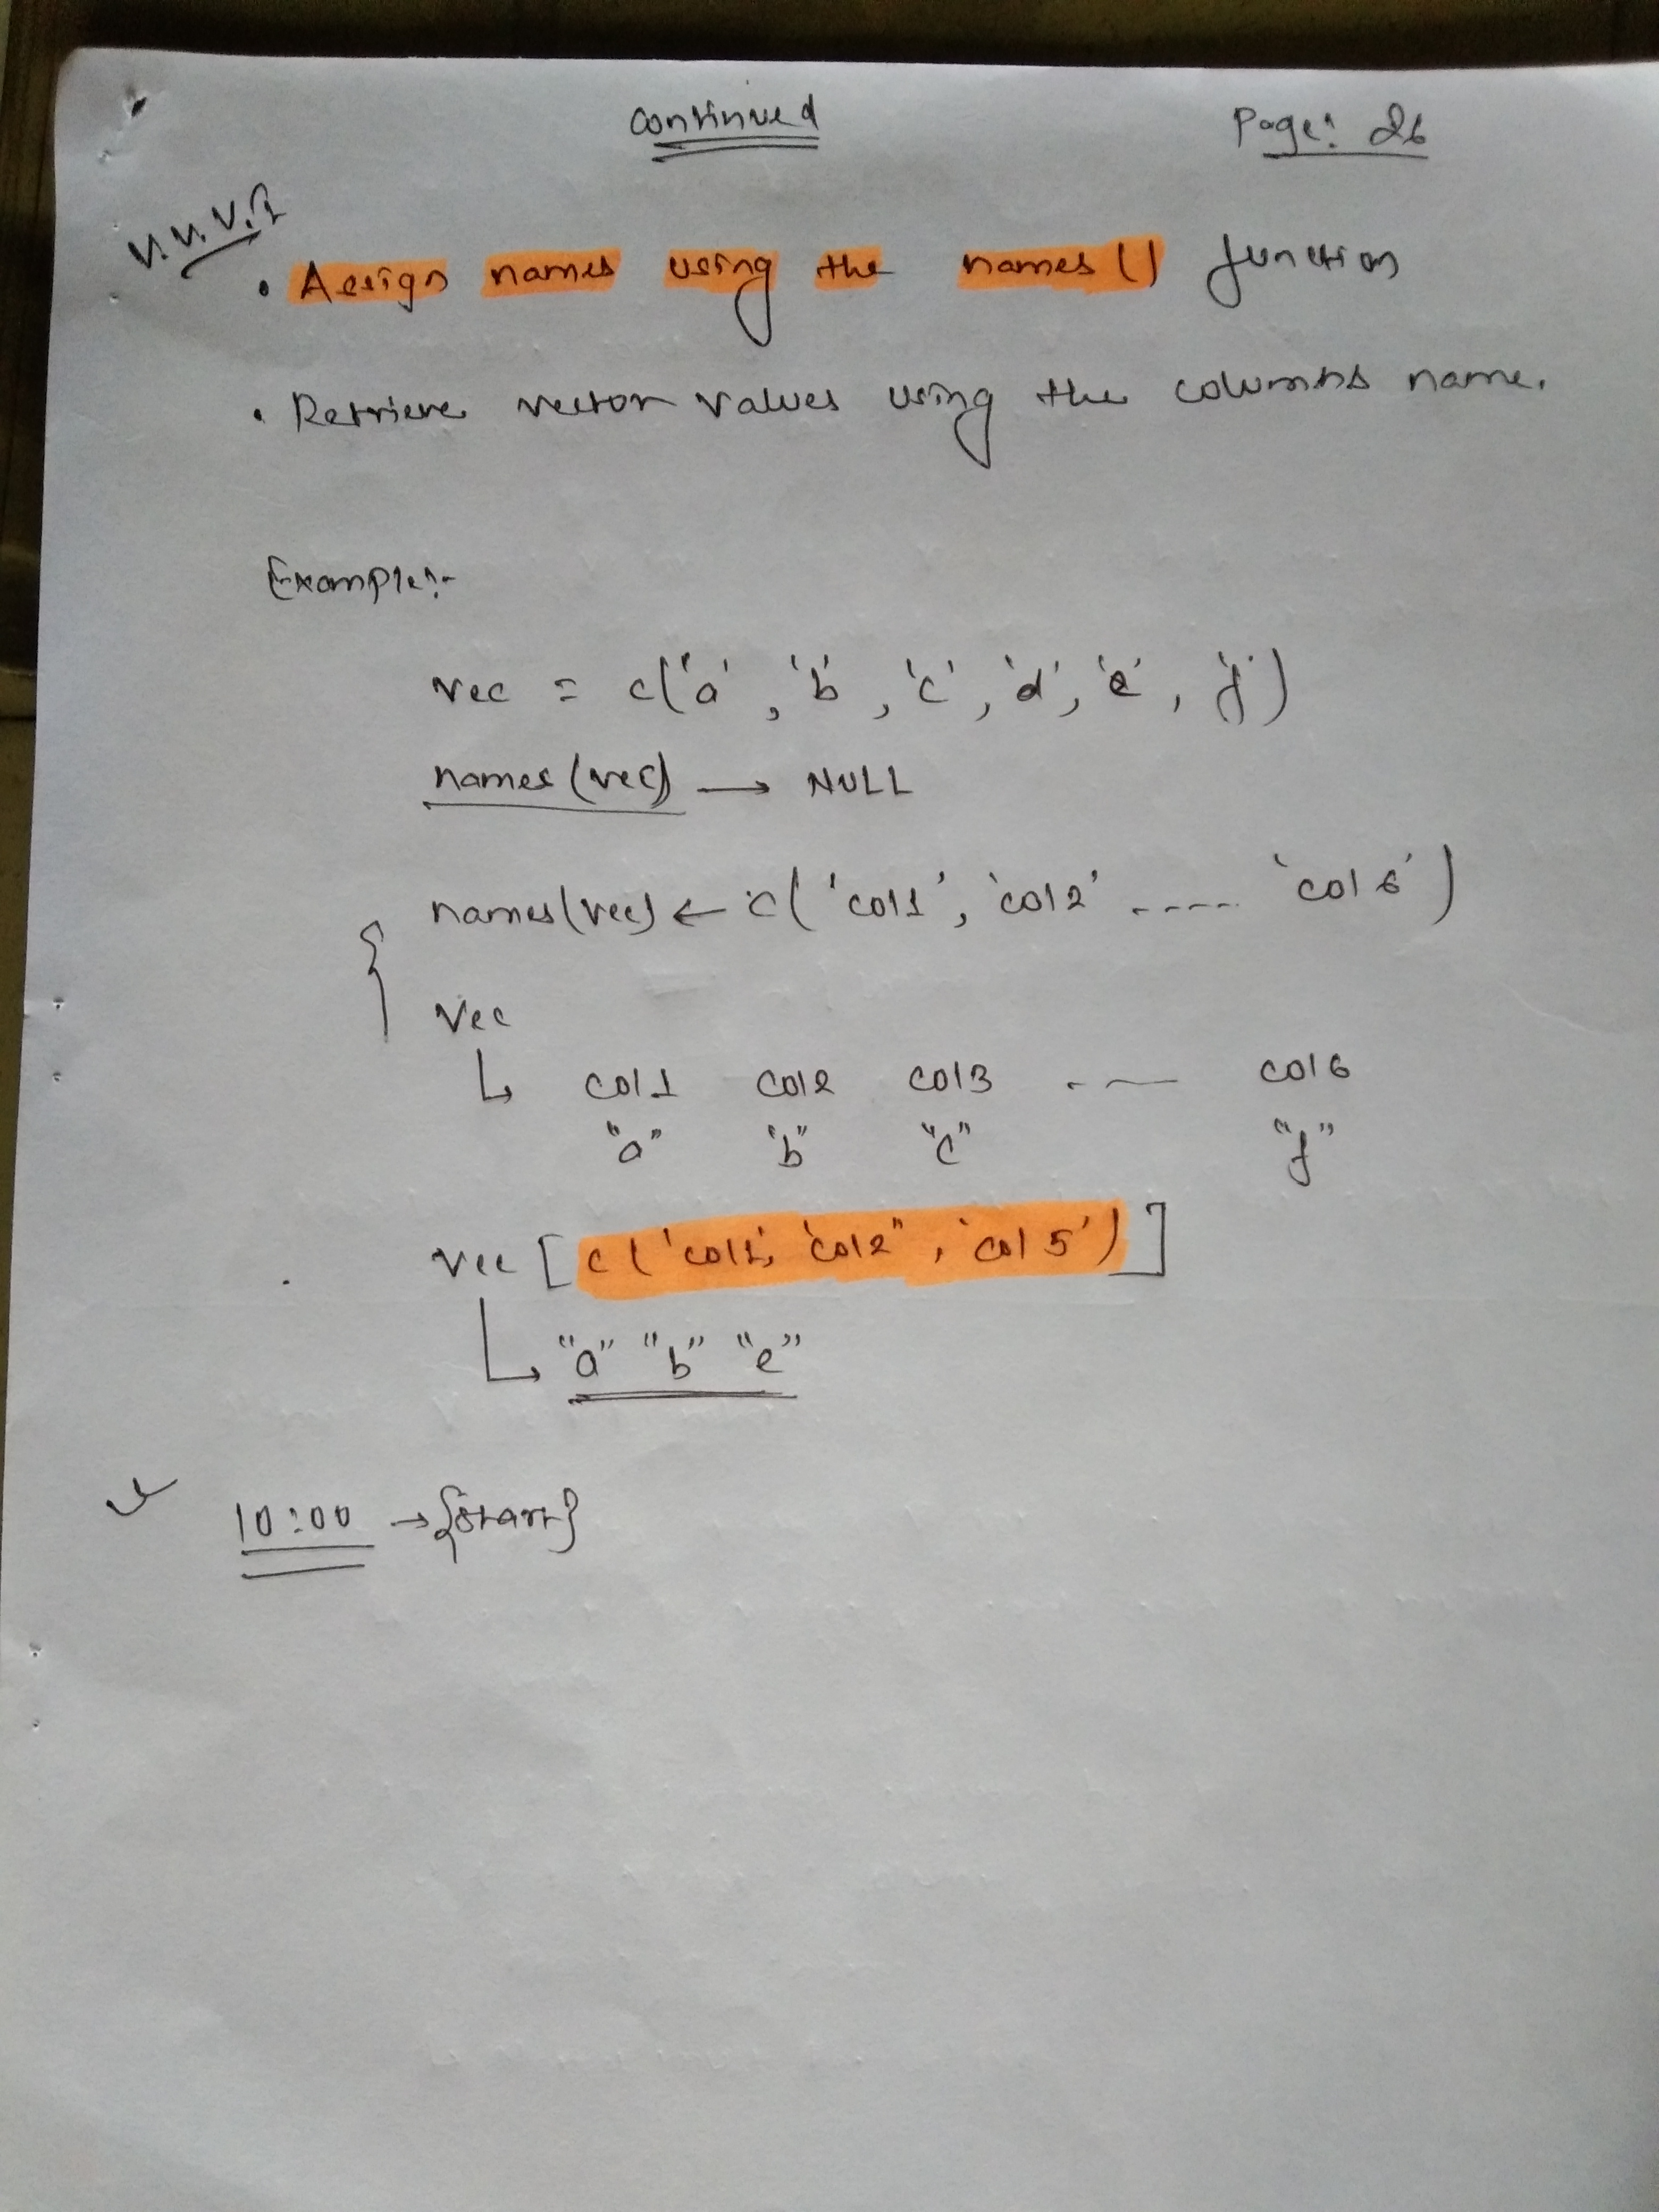 Continued Page: 26
V.V.V.I
• Assign names using the names() function
• Retrieve vector values using the columns name.
Example:-
vec = c('a', 'b', 'c', 'd', 'e', 'f')
names(vec) → NULL
names(vec) ← c('col1', 'col2' ..... 'col6')
vec
↳ col1 col2 col3 .--- col6
"a" "b" "c" "f"
vec [c('col1', 'col2", 'col5')]
↳ "a" "b" "e"
10:00 → {Start}